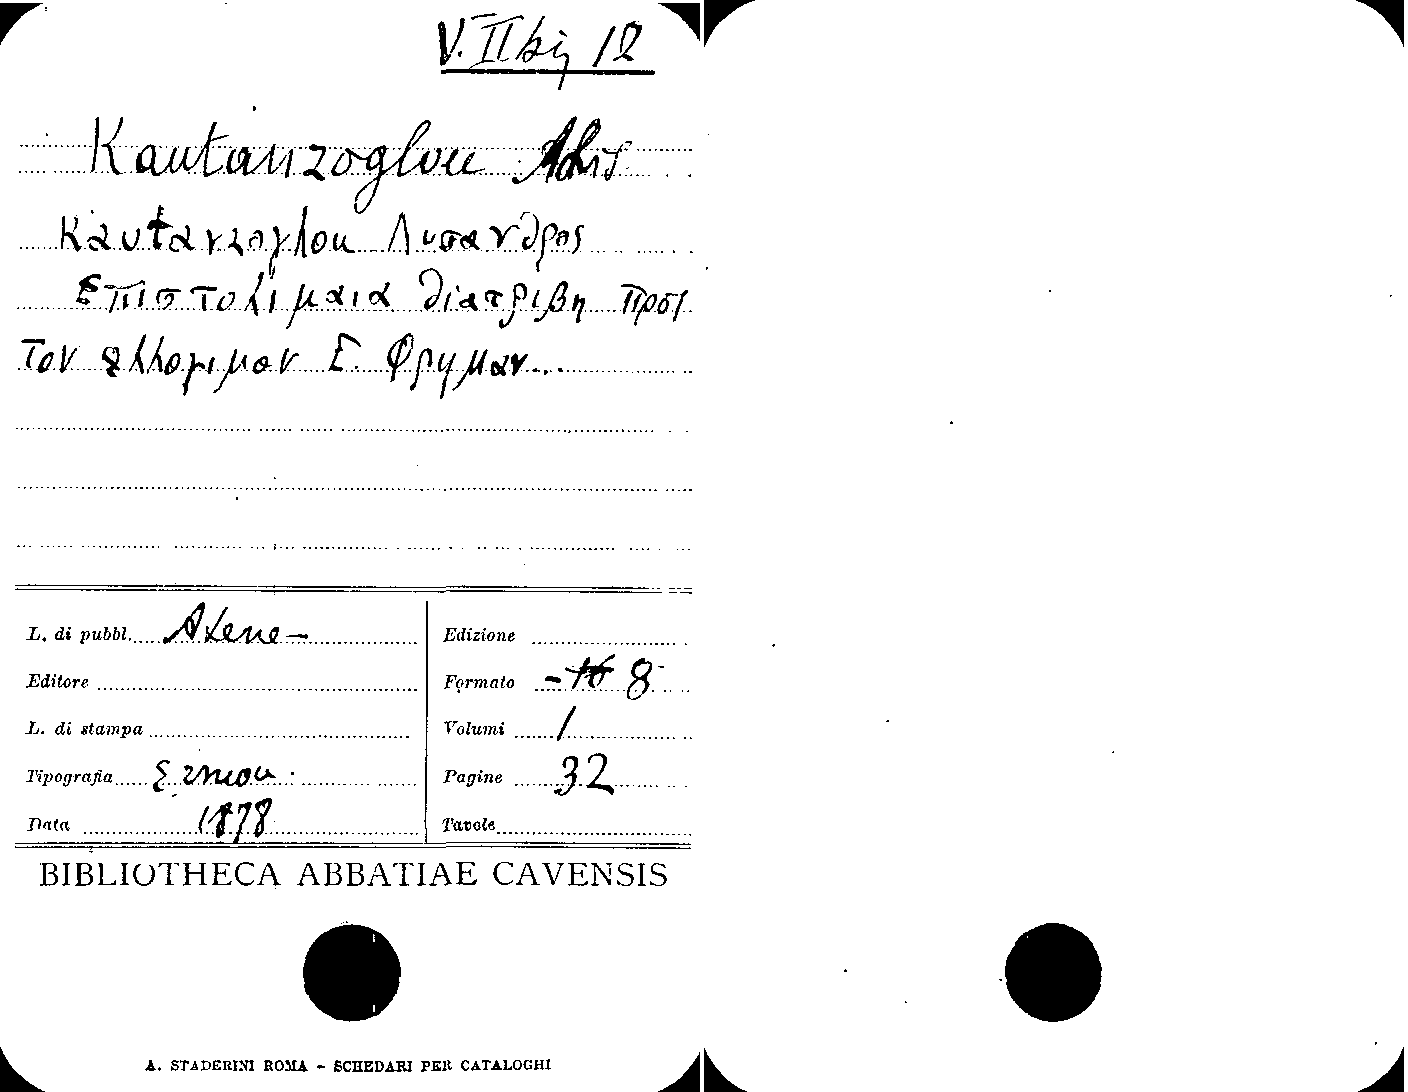 V. II bis 12
Kautanzoglou
Καυτανζογλου Λυσανδρος
Επιστολιμαια διατριβη προς
τον ελλογιμον Σ. Φρημαν...
L. di pubbl. Atene -
Edizione
Editore
Formato - 16 8
L. di stampa
Volumi 1
Tipografia
Pagine 32
Data 1878
Tavole
BIBLIOTHECA ABBATIAE CAVENSIS
A. STADERINI ROMA - SCHEDARI PER CATALOGHI